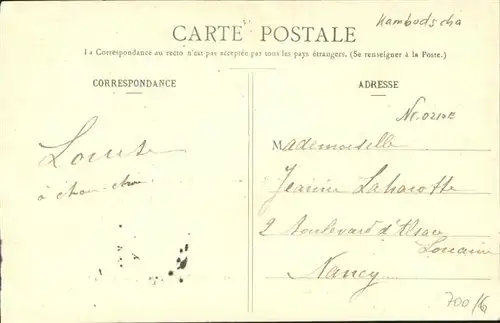 Kambodscha
CARTE POSTALE
La Correspondance au recto n'est pas acceptée par tous les pays étrangers. (Se renseigner à la Poste.)
CORRESPONDANCE
ADRESSE
Mademoiselle
Louise
Jeanne Laharotte
à chou-chou
2 Boulevard d'Alsace
Lorraine
Nancy
700/6